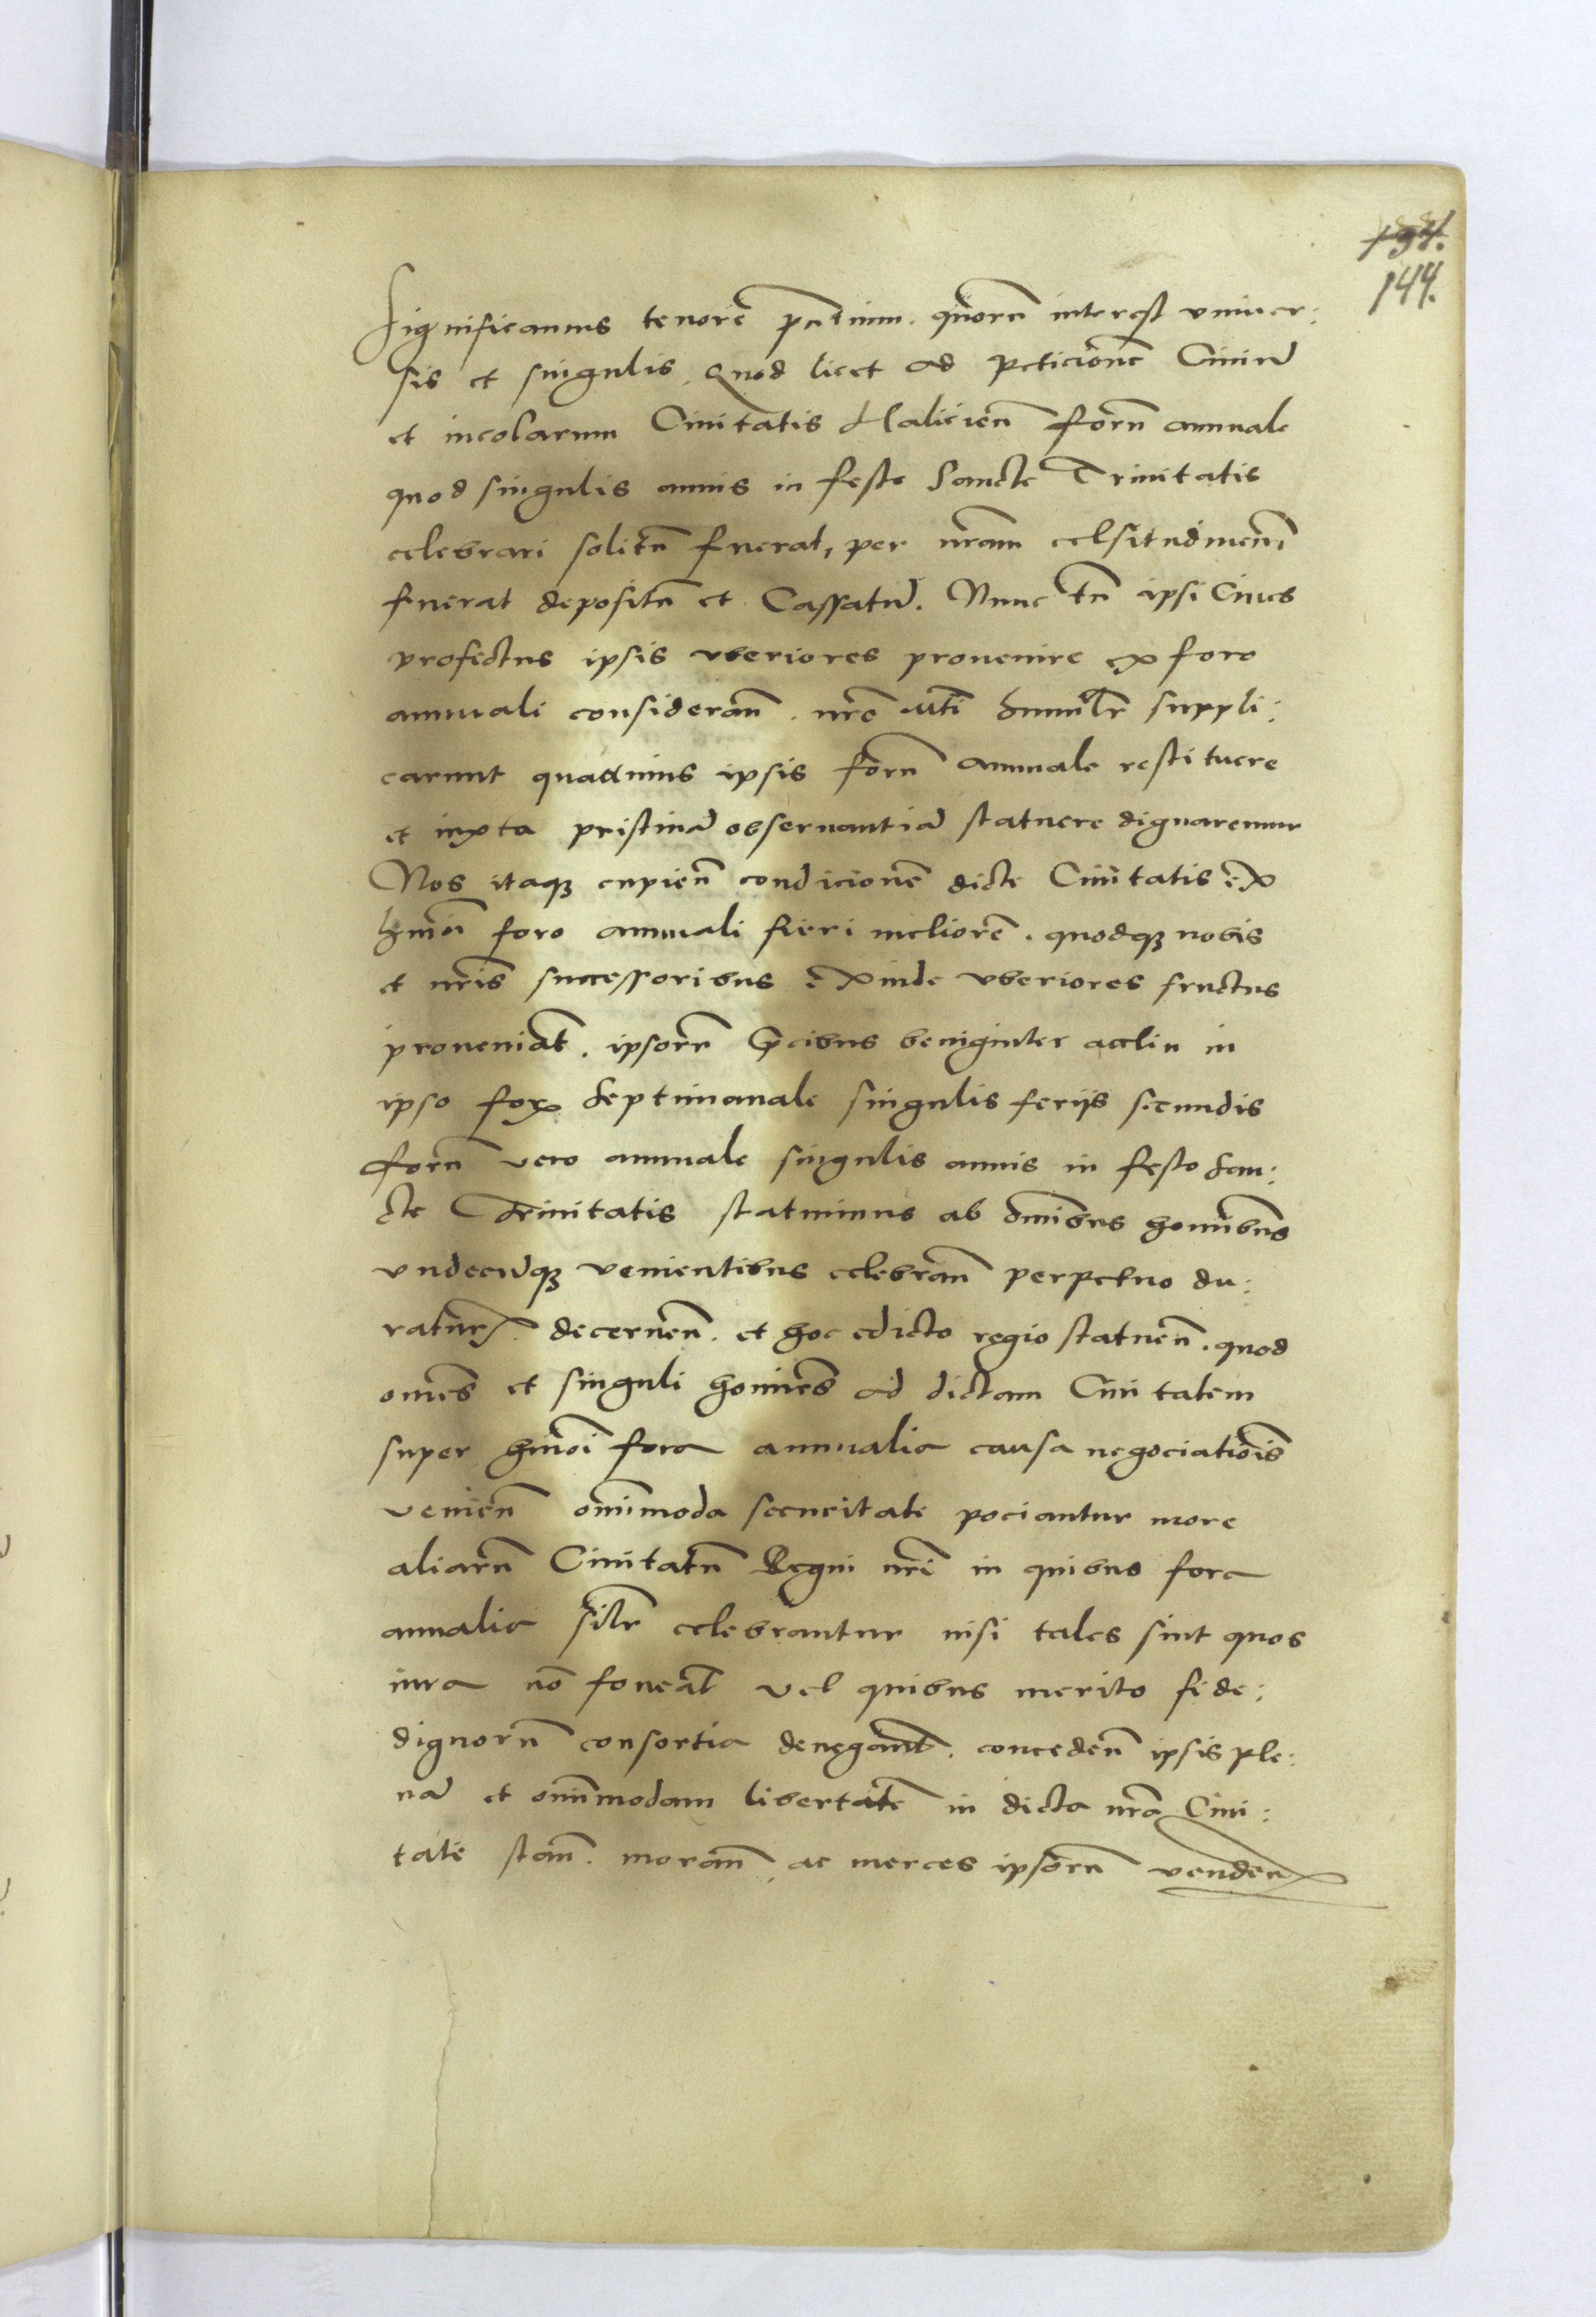 191.
144.
Significamus tenore pntium. quoru interest vniuer:
sis et singulis. Quod licet ad peticione Ciuiu
et incolarum Ciuitatis Halicien foru annuale
quod singulis annis in festo Sancte Trinitatis
celebrari solitu fuerat, per nram celsitudinem
fuerat depositu et Cassatu. Nunc tn ipsi Ciues
profectus ipsis vberiores prouenire ex foro
annuali consideran. nre Mti humilr suppli:
carunt quatinus ipsis foru annuale restituere
et iuxta pristina obseruantia statuere dignaremur
Nos itaq cupien condicione dicte Ciuitatis ex
hmoi foro annuali fieri meliore. quodq nobis
et nris successoribus exinde vberiores fructus
proueniat. ipsoru Pcibus benigniter acclin in
ipso foru Septimanale singulis ferijs secundis
foru vero annuale singulis annis in festo San:
cte Trinitatis statuimus ab omibus homibus
vndecuq venientibus celebran perpetuo du:
ratur. decernen. et hoc edicto regio statuen. quod
omes et singuli homies ad dictam Ciuitatem
super hmoi fora annualia causa negociatiois
venien omimoda securitate pociantur more
aliaru Ciuitatu Regni nri in quibus fora
annalia silr celebrantur nisi tales sint quos
iura no foueat vel quibus merito fide:
dignoru consortia denegant. conceden ipsis ple:
na et omimodam libertate in dicta nra Ciui:
tate stan. moran, ac merces ipsoru venden